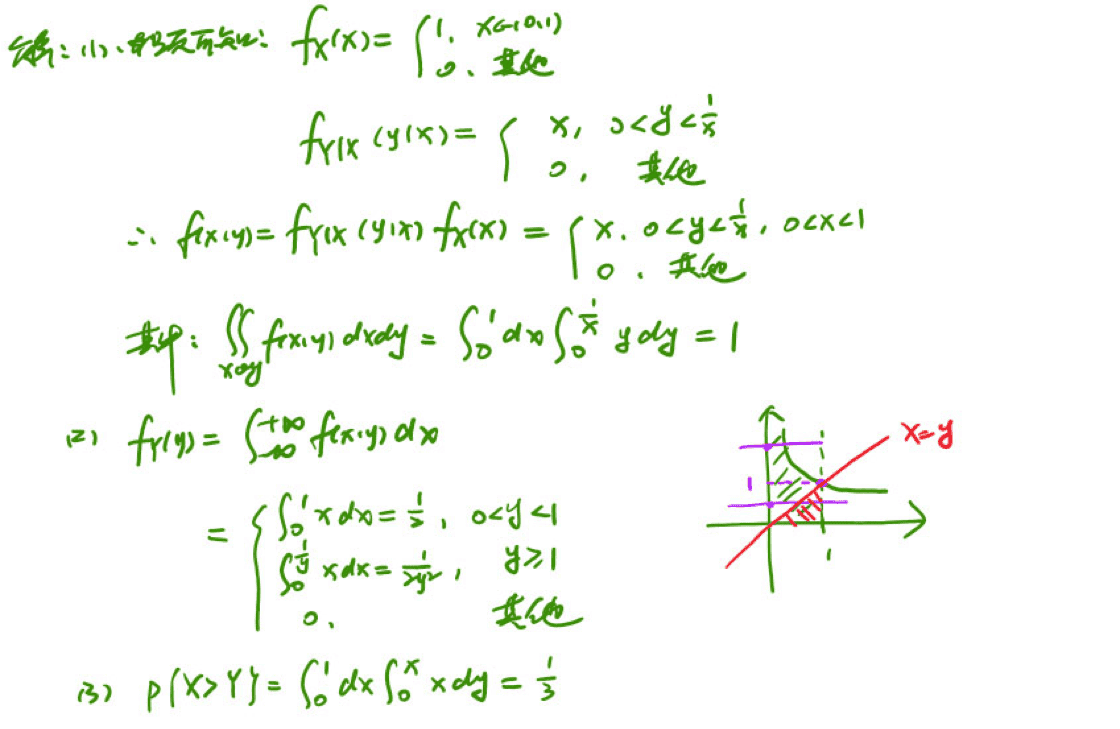 解:(1)、由题可知: f_X(x)= { 1, x∈(0,1)
0、其他
f_{Y|X}(y|x)= { x, 0<y<\frac{1}{x}
0, 其他
∴ f(x,y)=f_{Y|X}(y|x) f_X(x) = { x, 0<y<\frac{1}{x}, 0<x<1
0, 其他
其中: ∬_{xoy} f(x,y) dxdy = ∫_0^1 dx ∫_0^{\frac{1}{x}} y dy = 1
(2) f_Y(y)= ∫_{-∞}^{+∞} f(x,y) dx
= { ∫_0^1 x dx = \frac{1}{2}, 0<y<1
∫_0^{\frac{1}{y}} x dx = \frac{1}{2y^2}, y≥1
0, 其他
(3) P{X>Y}= ∫_0^1 dx ∫_0^x x dy = \frac{1}{3}
x=y
1
1